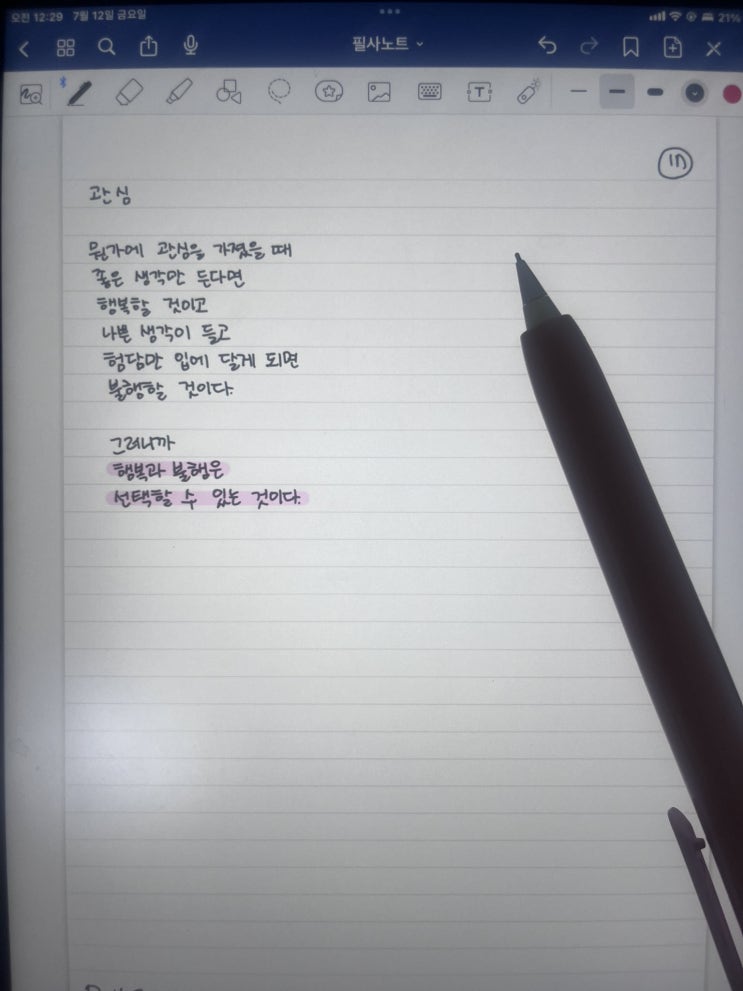 오전 12:29 7월 12일 금요일
21%
필사노트
T
관심
뭔가에 관심을 가졌을 때
좋은 생각만 든다면
행복할 것이고
나쁜 생각이 들고
험담만 입에 달게 되면
불행할 것이다.
그러니까
행복과 불행은
선택할 수 있는 것이다.